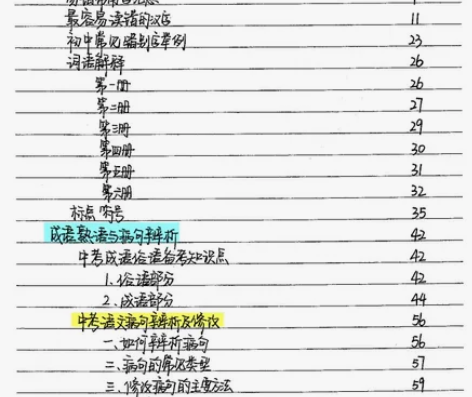 最容易读错的汉字 11
初中常见错别字举例 23
词语解释 26
第一册 26
第二册 27
第三册 29
第四册 30
第五册 31
第六册 32
标点符号 35
成语熟语与病句辨析 42
中考成语俗语备考知识点 42
1、俗语部分 42
2、成语部分 44
中考语文病句辨析及修改 56
一、如何辨析病句 56
二、病句的常见类型 57
三、修改病句的主要方法 59